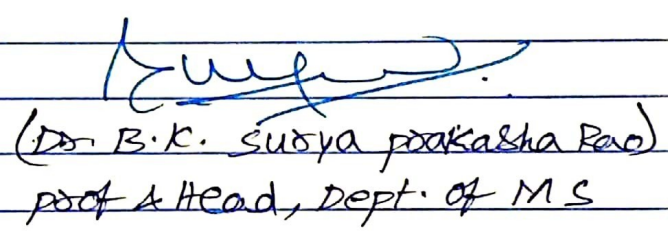 (Dr. B.K. Surya prakasha Rao)
prof & Head, Dept. of M S